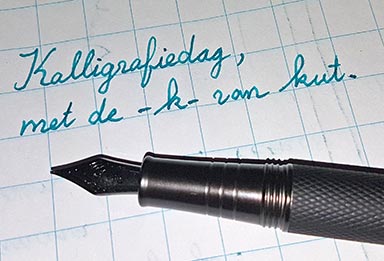 Kalligrafiedag,
met de -k- van kut.